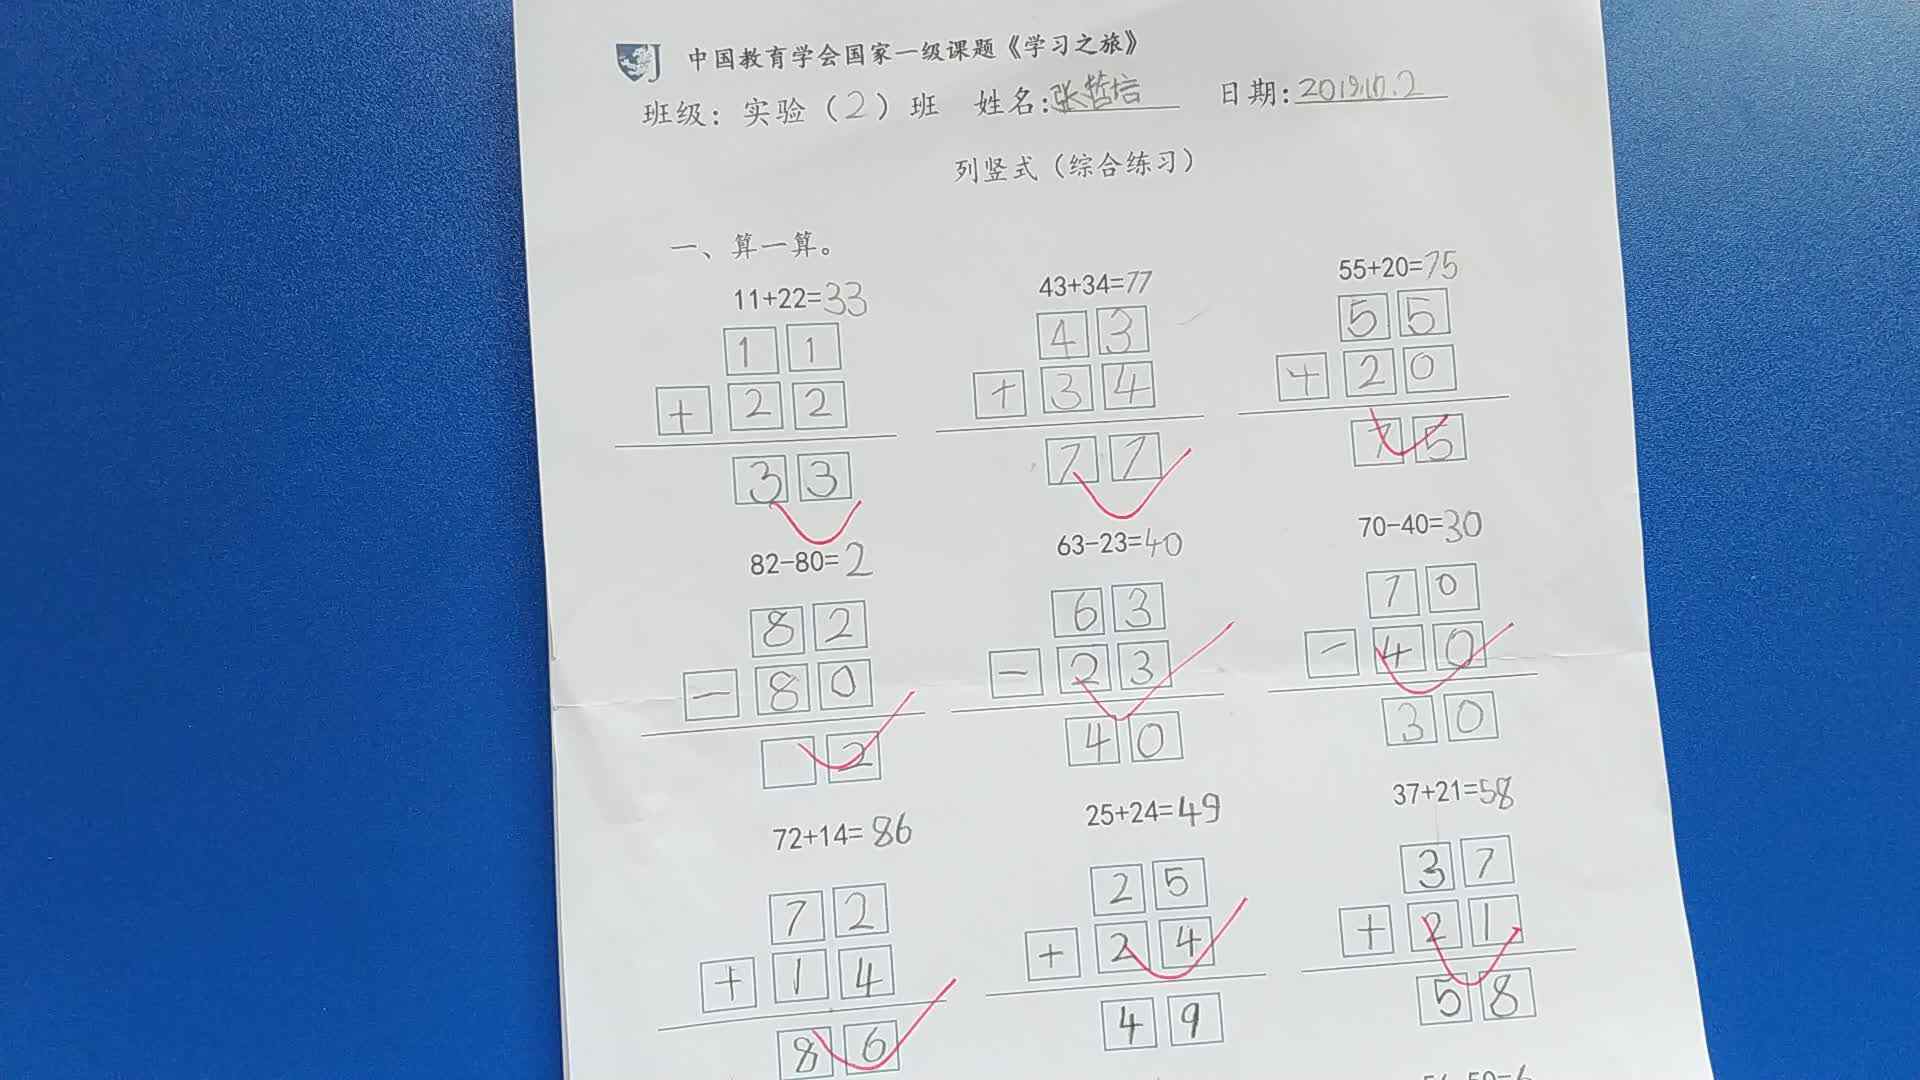 中国教育学会国家一级课题《学习之旅》
班级：实验（2）班 姓名:张哲培 日期:2019.10.2
列竖式（综合练习）
一、算一算。
11+22=33 43+34=77 55+20=75
1 1 4 3 5 5
+ 2 2 + 3 4 + 2 0
3 3 7 7 7 5
82-80=2 63-23=40 70-40=30
8 2 6 3 7 0
- 8 0 - 2 3 - 4 0
2 4 0 3 0
72+14=86 25+24=49 37+21=58
7 2 2 5 3 7
+ 1 4 + 2 4 + 2 1
8 6 4 9 5 8